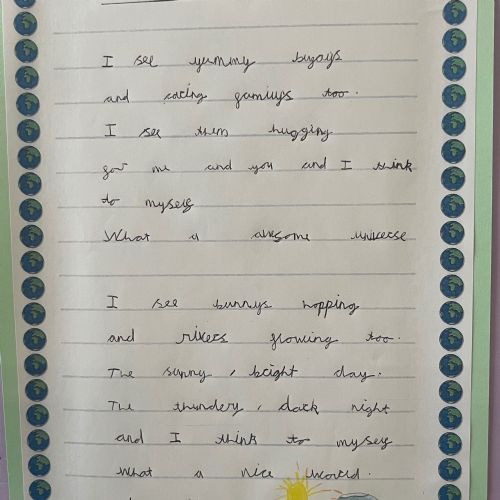 I see yummy buyoys
and caring gamiuys too.
I see them hugging
for me and you and I think
to myself
What a awsome universe
I see bunnys hopping
and rivers flowing too.
The sunny, bright day.
The thundery, dark night
and I think to myself
What a nice world.